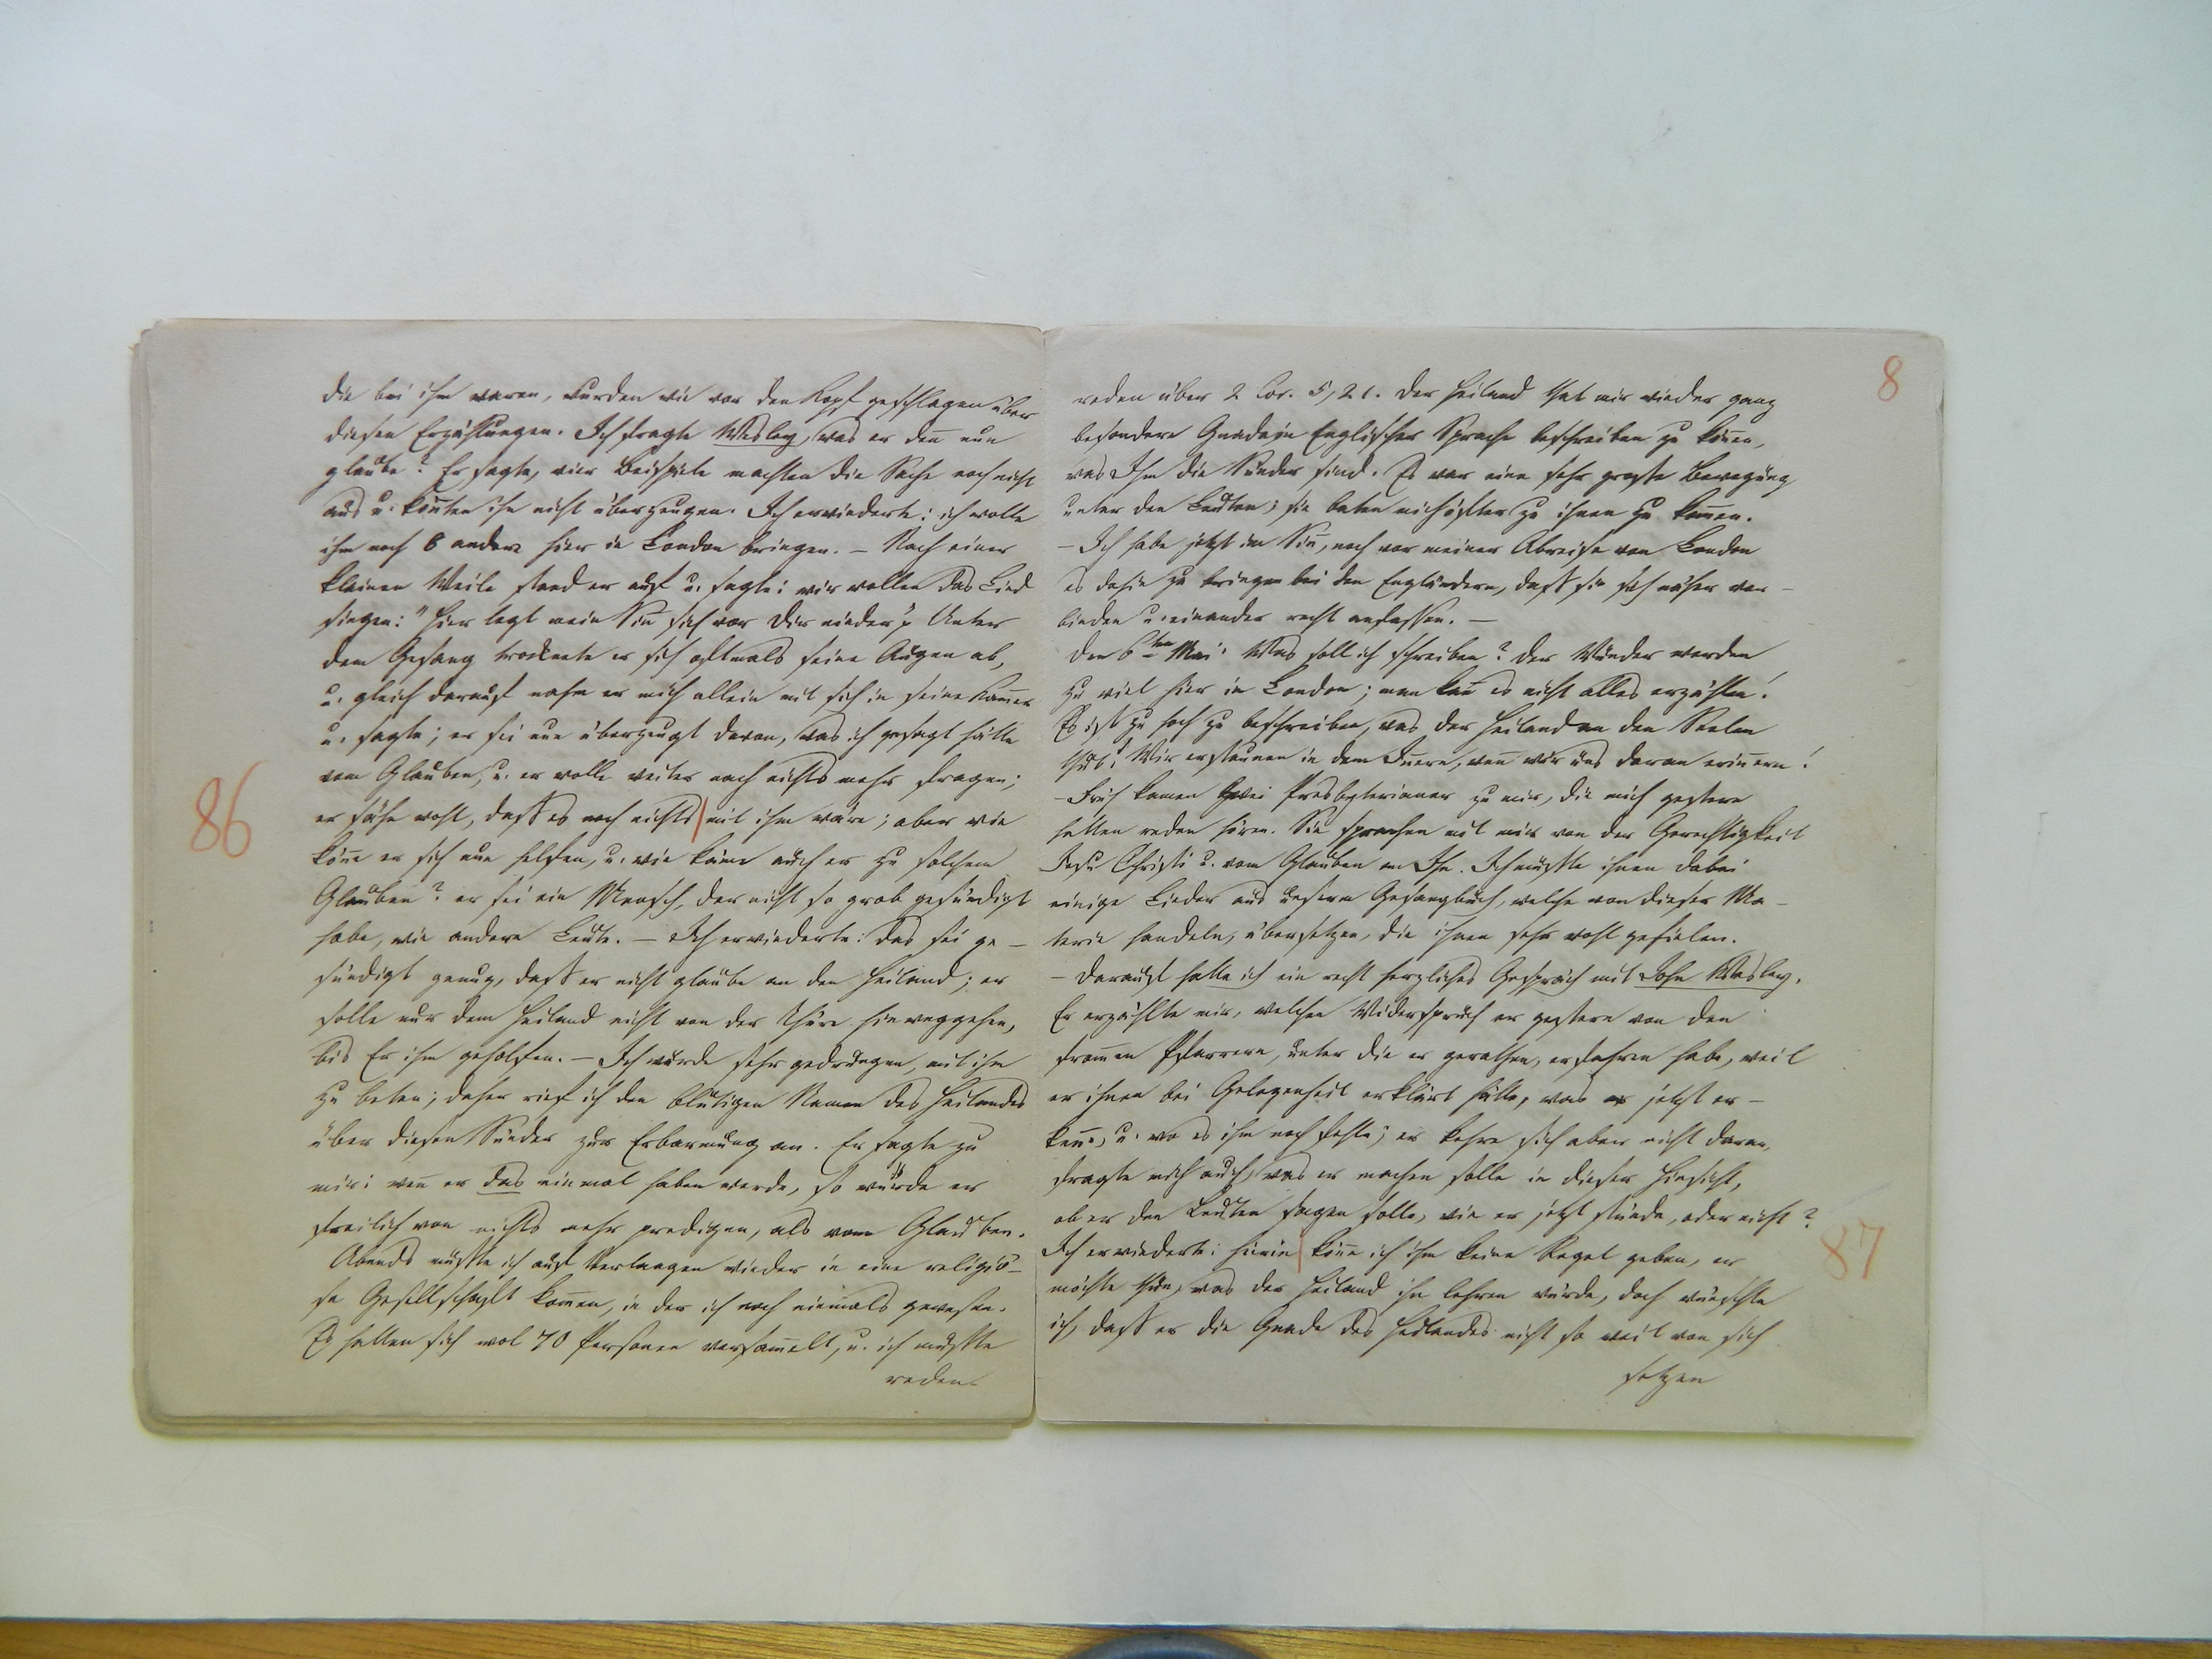 die bei ihm waren, wurden wie vor den Kopf geschlagen über
diesen Erzählungen. Ich fragte Wesley, was er deñ nun
glaube? Er sagte, vier Beispiele machten die Sache noch nicht
aus u. köñten ihn nicht überzeugen. Ich erwiederte: ich wolle
ihm noch 8 andere hier in London bringen. – Nach einer
kleinen Weile stand er auf u. sagte: wir wollen das Lied
singen: "Hier legt mein Siñ sich vor dir nieder". Unter
dem Gesang trocknete er sich oftmals seine Augen ab,
u. gleich darauf nahm er mich allein mit sich in seine Kam̃er
u. sagte; er sei nun überzeugt davon, was ich gesagt hätte
vom Glauben, u. er wolle weiter nach nichts mehr fragen;
86
er sähe wohl, daß es noch nichts | mit ihm wäre; aber wie
köñe er sich nun helfen, u. wie käme auch er zu solchem
Glauben? er sei ein Mensch, der nicht so grob gesündigt
habe, wie andere Leute. – Ich erwiederte: das sei ge-
sündigt genug, daß er nicht glaube an den Heiland; er
solle nur dem Heiland nicht von der Thüre hinweggehen,
bis Er ihm geholfen. – Ich wurde sehr gedrungen, mit ihm
zu beten; daher rief ich den blutigen Namen des Heilandes
über diesen Sünder zur Erbarmung an. Er sagte zu
mir: weñ er das einmal haben werde, so würde er
freilich von nichts mehr predigen, als vom Glauben.
Abends mußte ich auf Verlangen wieder in eine religiö-
se Gesellschaft kom̃en, in der ich noch niemals gewesen.
Es hatten sich wol 70 Personen versam̃elt, u. ich mußte
reden
8
reden über 2 Cor. 5, 21. Der Heiland that mir wieder ganz
besondere Gnade in Englischer Sprache beschreiben zu köñen,
was Ihm die Sünder sind. Es war eine sehr große Bewegung
unter den Leuten; sie baten mich öfter zu ihnen zu kom̃en.
– Ich habe jetzt im Siñ, noch vor meiner Abreise von London
es dahin zu bringen bei den Engländern, daß sie sich näher ver-
binden u. einander recht anfassen. –
Den 6ten Mai. Was soll ich schreiben? Der Wunder werden
zu viel hier in London; man kañ es nicht alles erzählen!
Es ist zu hoch zu beschreiben, was der Heiland an den Seelen
thut! Wir erstaunen in dem Iñern, weñ wir uns daran eriñern!
– Früh kamen zwei Presbyterianer zu mir, die mich gestern
hatten reden hören. Sie sprachen mit mir von der Gerechtigkeit
Jesu Christi u. vom Glauben an Ihn. Ich mußte ihnen dabei
einige Lieder aus unserm Gesangbuch, welche von dieser Ma-
terie handeln, übersetzen, die ihnen sehr wohl gefielen.
– Darauf hatte ich ein recht herzliches Gespräch mit John Wesley.
Er erzählte mir, welchen Widerspruch er gestern von den
from̃en Pfarrern, unter die er gerathen, erfahren habe, weil
er ihnen bei Gelegenheit erklärt hätte, was er jetzt er-
keñe, u. wo es ihm noch fehle; er kehre sich aber nicht daran,
fragte mich auch, was er machen solle in dieser Hinsicht,
ob er den Leuten sagen solle, wie er jetzt stünde, oder nicht?
87
Ich erwiederte: hierin | köñe ich ihm keine Regel geben, er
möchte thun, was der Heiland ihn lehren würde, doch wünschte
ich, daß er die Gnade des Heilandes nicht so weit von sich
setzen